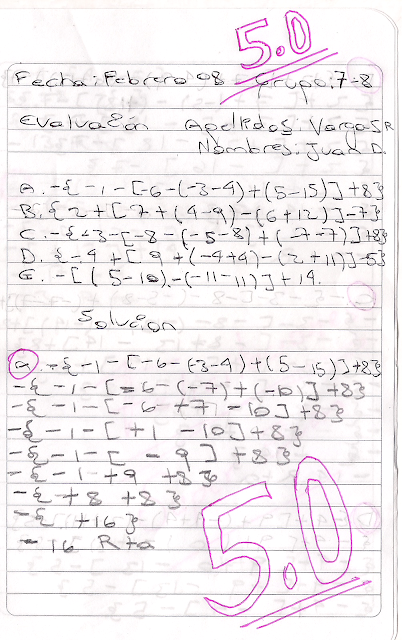 5.0
Fecha: Febrero 08 - Grupo: 7-8
Evaluación Apellidos: Vargas R
Nombres: Juan D.
A. -{-1-[-6-(-3-4)+(5-15)]+8}
B. {2+[7+(4-9)-(6+12)]-7}
C. -{+3-[-8-(-5-8)+(-7-7)]+8}
D. {-4+[9+(-4+4)-(2+11)]-5}
E. -[(5-10)-(-11-11)]+14.
Solución
a -{-1-[-6-(-3-4)+(5-15)]+8}
-{-1-[-6-(-7)+(-10)]+8}
-{-1-[-6+7-10]+8}
-{-1-[+1-10]+8}
-{-1-[-9]+8}
-{-1+9+8}
-{+8+8}
-{+16}
-16 Rta
5.0